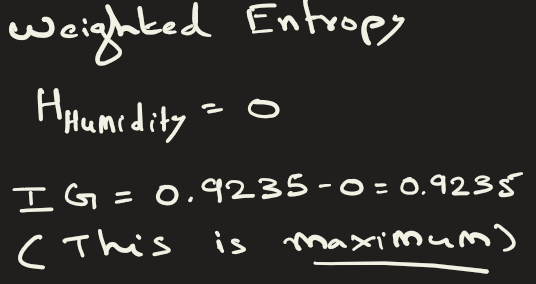 Weighted Entropy
H Humidity = 0
IG = 0.9235 - 0 = 0.9235
(This is maximum)